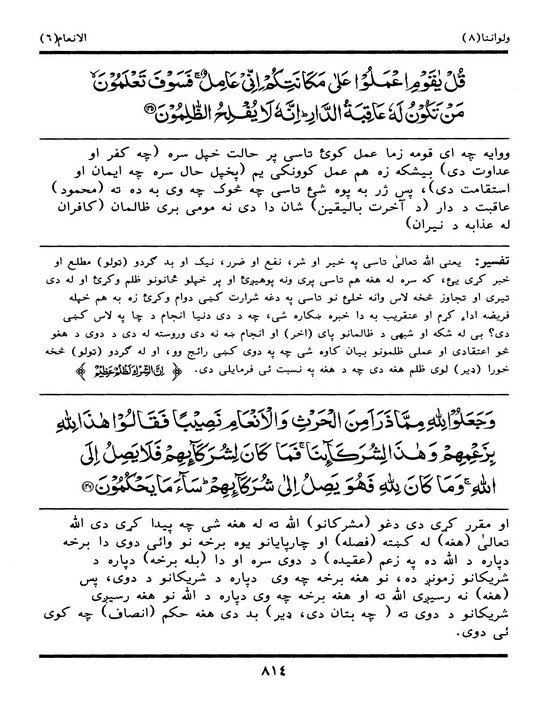 ولواننا(٨) الانعام(٦)
قُلْ يٰقَوْمِ اعْمَلُوْا عَلٰى مَكَانَتِكُمْ اِنِّىْ عَامِلٌ ۚ فَسَوْفَ تَعْلَمُوْنَ ۙ
مَنْ تَكُوْنُ لَهٗ عَاقِبَةُ الدَّارِ ؕ اِنَّهٗ لَا يُفْلِحُ الظّٰلِمُوْنَ
ووايه چه اى قومه زما عمل كوئ تاسى پر حالت خپل سره (چه كفر او
عداوت دى) بيشكه زه هم عمل كوونكى يم (پخپل حال سره چه ايمان او
استقامت دى)، پس ژر به پوه شئ تاسى چه څوك چه وى به ده ته (محمود)
عاقبت د دار (د آخرت باليقين) شان دا دى نه مومى برى ظالمان (كافران
له عذابه د نيران)
تفسير: يعنى الله تعالىٰ تاسى په خير او شر، نفع او ضرر، نيك او بد گردو (تولو) مطلع او
خبر كړى يئ، كه سره له هغه هم تاسى پرى ونه پوهيږئ او پر خپلو ځانونو ظلم وكړئ او له دى
تيرى او تجاوز څخه لاس وانه خلئ نو تاسى په دغه شرارت كښى دوام وكړئ زه به هم خپله
فريضه اداء كرم او عنقريب به دا خبره ښكاره شى، چه د دى دنيا انجام د چا په لاس كښى
دى؟ بى له شكه او شبهى د ظالمانو پاى (اخر) او انجام ښه نه دى وروسته له دى د دوى د هغو
څو اعتقادى او عملى ظلمونو بيان كاوه شى چه په دوى كښى رائج وو، او له گردو (تولو) څخه
خورا (ډير) لوى ظلم هغه دى چه د هغه په نسبت ئى فرمايلى دى. ﴿ اِنَّ الشِّرْكَ لَظُلْمٌ عَظِيْمٌ ﴾
وَجَعَلُوْا لِلّٰهِ مِمَّا ذَرَاَ مِنَ الْحَرْثِ وَالْاَنْعَامِ نَصِيْبًا فَقَالُوْا هٰذَا لِلّٰهِ
بِزَعْمِهِمْ وَهٰذَا لِشُرَكَآئِنَا ۚ فَمَا كَانَ لِشُرَكَآئِهِمْ فَلَا يَصِلُ اِلَى
اللّٰهِ ۚ وَمَا كَانَ لِلّٰهِ فَهُوَ يَصِلُ اِلٰى شُرَكَآئِهِمْ ؕ سَآءَ مَا يَحْكُمُوْنَ
او مقرر كړى دى دغو (مشركانو) الله ته له هغه شى چه پيدا كړى دى الله
تعالىٰ (هغه) له كښته (فصله) او چارپايانو يوه برخه نو وائى دوى دا برخه
دپاره د الله ده په زعم (عقيده) د دوى سره او دا (بله برخه) دپاره د
شريكانو زمونږ ده، نو هغه برخه چه وى دپاره د شريكانو د دوى، پس
(هغه) نه رسيږى الله ته او هغه برخه چه وى دپاره د الله نو هغه رسيږى
شريكانو د دوى ته ( چه بتان دى، ډير) بد دى هغه حكم (انصاف) چه كوى
ئى دوى.
٨١٤